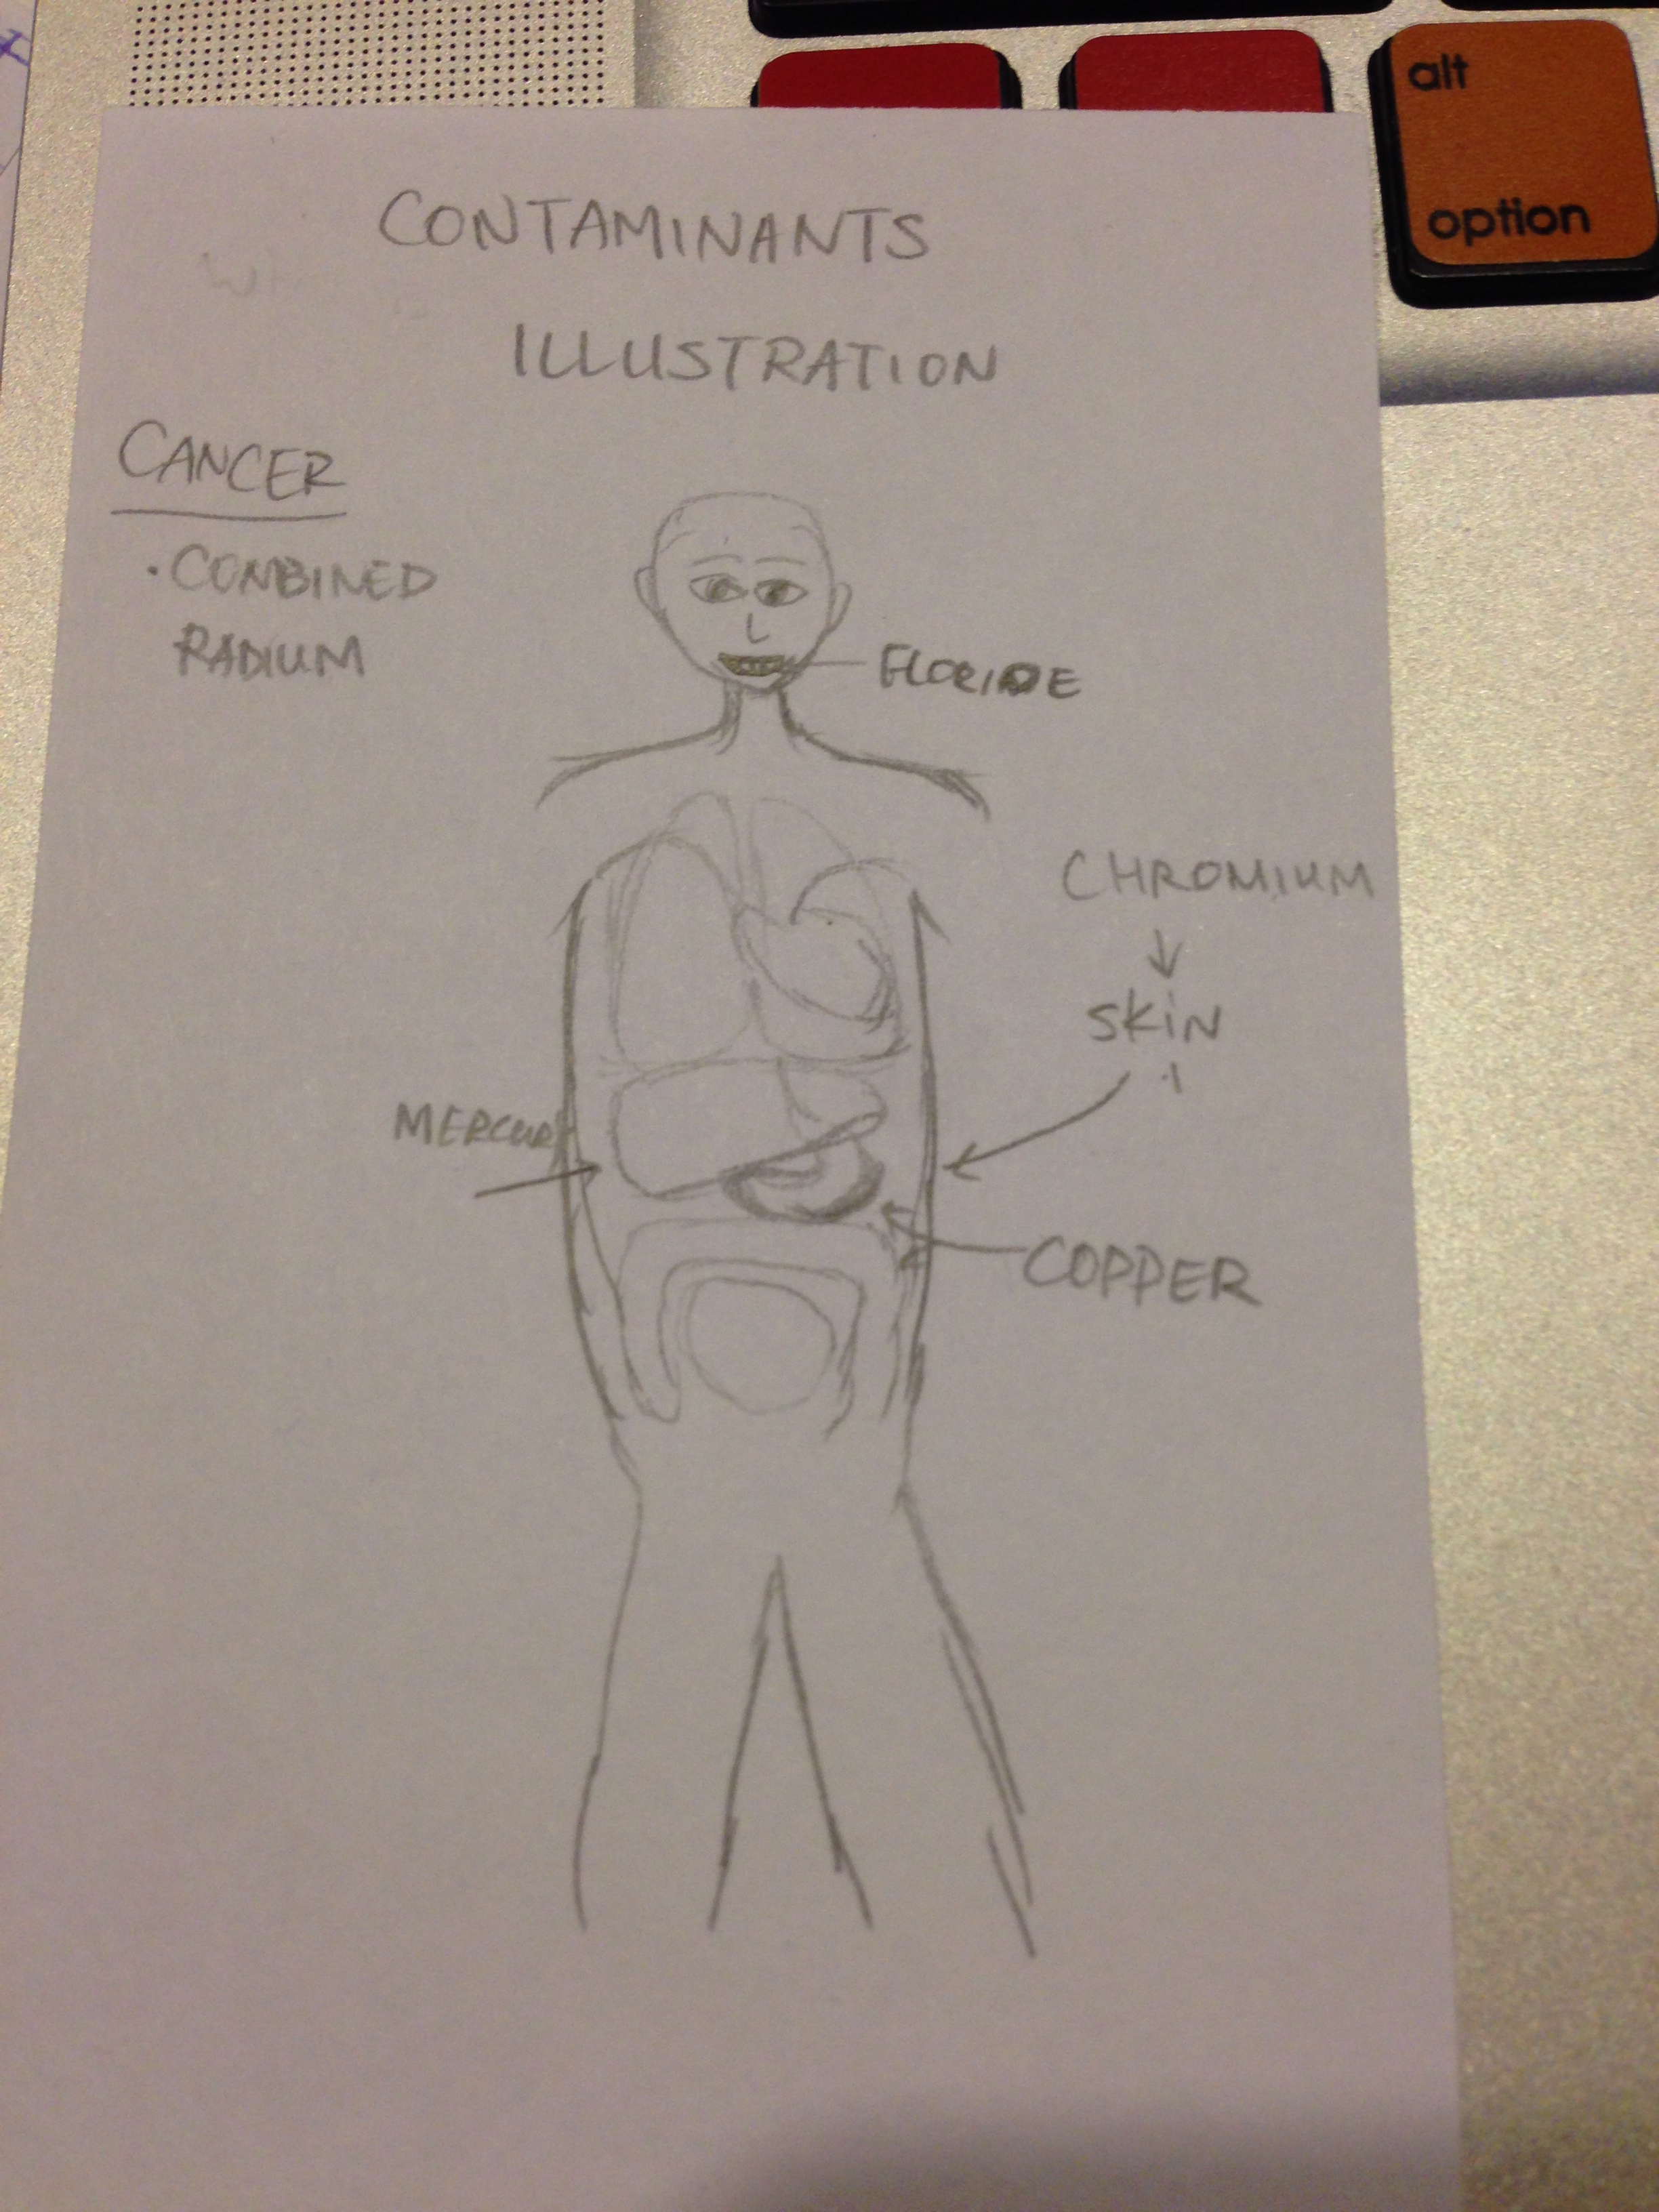 alt
option
CONTAMINANTS
ILLUSTRATION
CANCER
· COMBINED
RADIUM
FLORIDE
CHROMIUM
↓
SKIN
MERCURY
COPPER